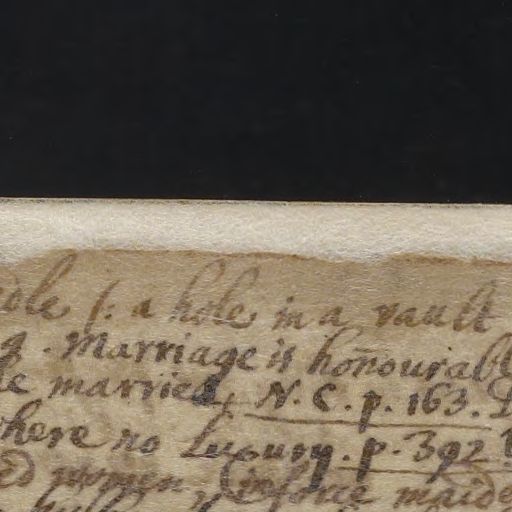 (: a hole in a vault
g. Marriage is honourabl
married, N. C. p. 163.
here no Luxury. p. 392
women, maide